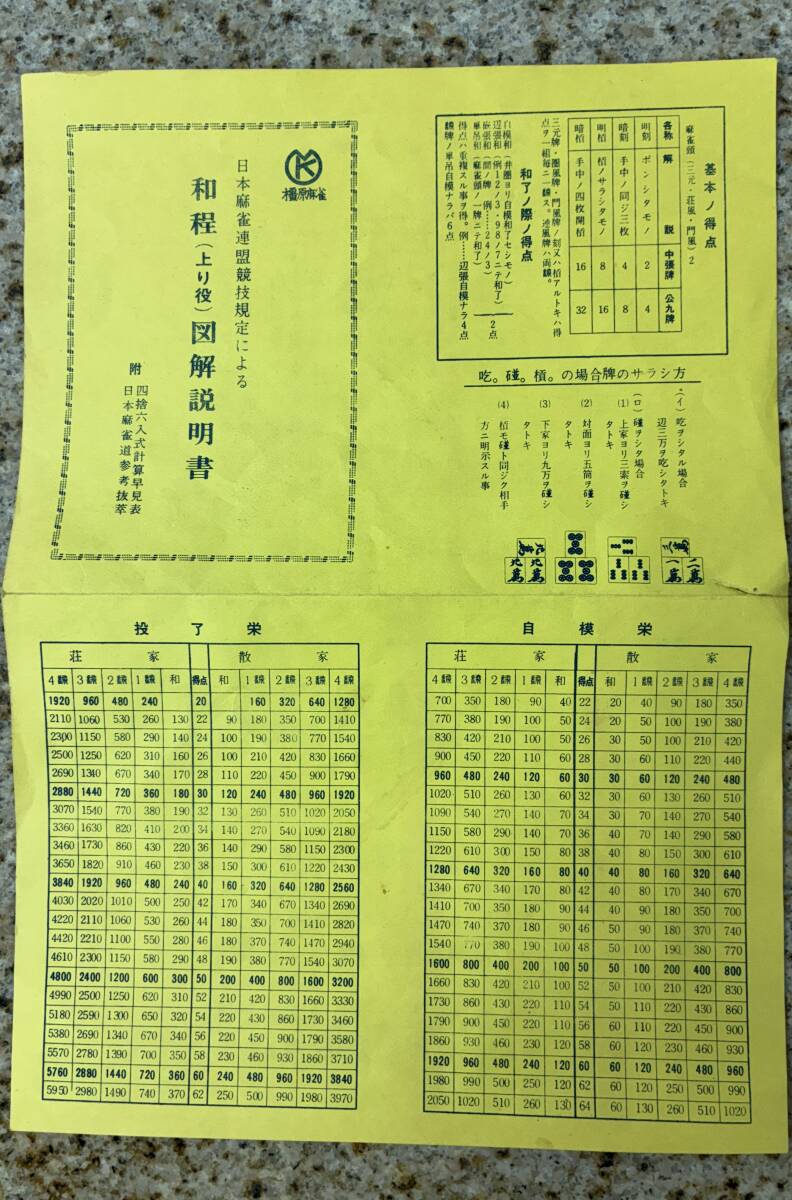 基本ノ得点
麻雀頭(三元・荘風・門風)2
各称 解説 中張牌 公九牌
明刻 ポンシタモノ 2 4
暗刻 手中ノ同ジ三枚 4 8
明槓 槓ノサラシタモノ 8 16
暗槓 手中ノ四枚開槓 16 32
三元牌・圏風牌・門風牌ノ刻又ハ槓アルトキハ得
点ヲ一組毎ニ一飜ス。連風牌ハ両飜。
和了ノ際ノ得点
自模和(井圏ヨリ自模和了セシモノ)
辺張和(例12ノ3・98ノ7ニテ和了)
嵌張和(間ノ牌 例……24ノ3)
単吊和(麻雀頭ノ一牌ニテ和了)
2点
得点ハ重複スル事ヲ得。例……辺張自模ナラ4点
飜牌ノ単吊自模ナラバ6点
吃。碰。槓。の場合牌のサラシ方
(イ) 吃ヲシタル場合
辺三万ヲ吃シタトキ
(ロ) 碰ヲシタ場合
(1) 上家ヨリ三索ヲ碰シ
タトキ
(2) 対面ヨリ五筒ヲ碰シ
タトキ
(3) 下家ヨリ九万ヲ碰シ
タトキ
(4) 槓モ碰ト同ジク相手
方ニ明示スル事
橿原麻雀
日本麻雀連盟競技規定による
和程(上り役)図解説明書
附
四捨六入式計算早見表
日本麻雀道参考抜萃
投了栄
荘家 散家
4飜 3飜 2飜 1飜 和 得点 和 1飜 2飜 3飜 4飜
1920 960 480 240 20 160 320 640 1280
2110 1060 530 260 130 22 90 180 350 700 1410
2300 1150 580 290 140 24 100 190 380 770 1540
2500 1250 620 310 160 26 100 210 420 830 1660
2690 1340 670 340 170 28 110 220 450 900 1790
2880 1440 720 360 180 30 120 240 480 960 1920
3070 1540 770 380 190 32 130 260 510 1020 2050
3360 1630 820 410 200 34 140 270 540 1090 2180
3460 1730 860 430 220 36 140 290 580 1150 2300
3650 1820 910 460 230 38 150 300 610 1220 2430
3840 1920 960 480 240 40 160 320 640 1280 2560
4030 2020 1010 500 250 42 170 340 670 1340 2690
4220 2110 1060 530 260 44 180 350 700 1410 2820
4420 2210 1100 550 280 46 180 370 740 1470 2940
4610 2300 1150 580 290 48 190 380 770 1540 3070
4800 2400 1200 600 300 50 200 400 800 1600 3200
4990 2500 1250 620 310 52 210 420 830 1660 3330
5180 2590 1300 650 320 54 220 430 860 1730 3460
5380 2690 1340 670 340 56 220 450 900 1790 3580
5570 2780 1390 700 350 58 230 460 930 1860 3710
5760 2880 1440 720 360 60 240 480 960 1920 3840
5950 2980 1490 740 370 62 250 500 990 1980 3970
自模栄
荘家 散家
4飜 3飜 2飜 1飜 和 得点 和 1飜 2飜 3飜 4飜
700 350 180 90 40 22 20 40 90 180 350
770 380 190 100 50 24 20 50 100 190 380
830 420 210 100 50 26 30 50 100 210 420
900 450 220 110 60 28 30 60 110 220 440
960 480 240 120 60 30 30 60 120 240 480
1020 510 260 130 60 32 30 60 130 260 510
1090 540 270 140 70 34 30 70 140 270 540
1150 580 290 140 70 36 40 70 140 290 580
1220 610 300 150 80 38 40 80 150 300 610
1280 640 320 160 80 40 40 80 160 320 640
1340 670 340 170 80 42 40 80 170 340 670
1410 700 350 180 90 44 40 90 180 350 700
1470 740 370 180 90 46 50 90 180 370 740
1540 770 380 190 100 48 50 100 190 380 770
1600 800 400 200 100 50 50 100 200 400 800
1660 830 420 210 100 52 50 100 210 420 830
1730 860 430 220 110 54 50 110 220 430 860
1790 900 450 220 110 56 60 110 220 450 900
1860 930 460 230 120 58 60 120 230 460 930
1920 960 480 240 120 60 60 120 240 480 960
1980 990 500 250 120 62 60 120 250 500 990
2050 1020 510 260 130 64 60 130 260 510 1020